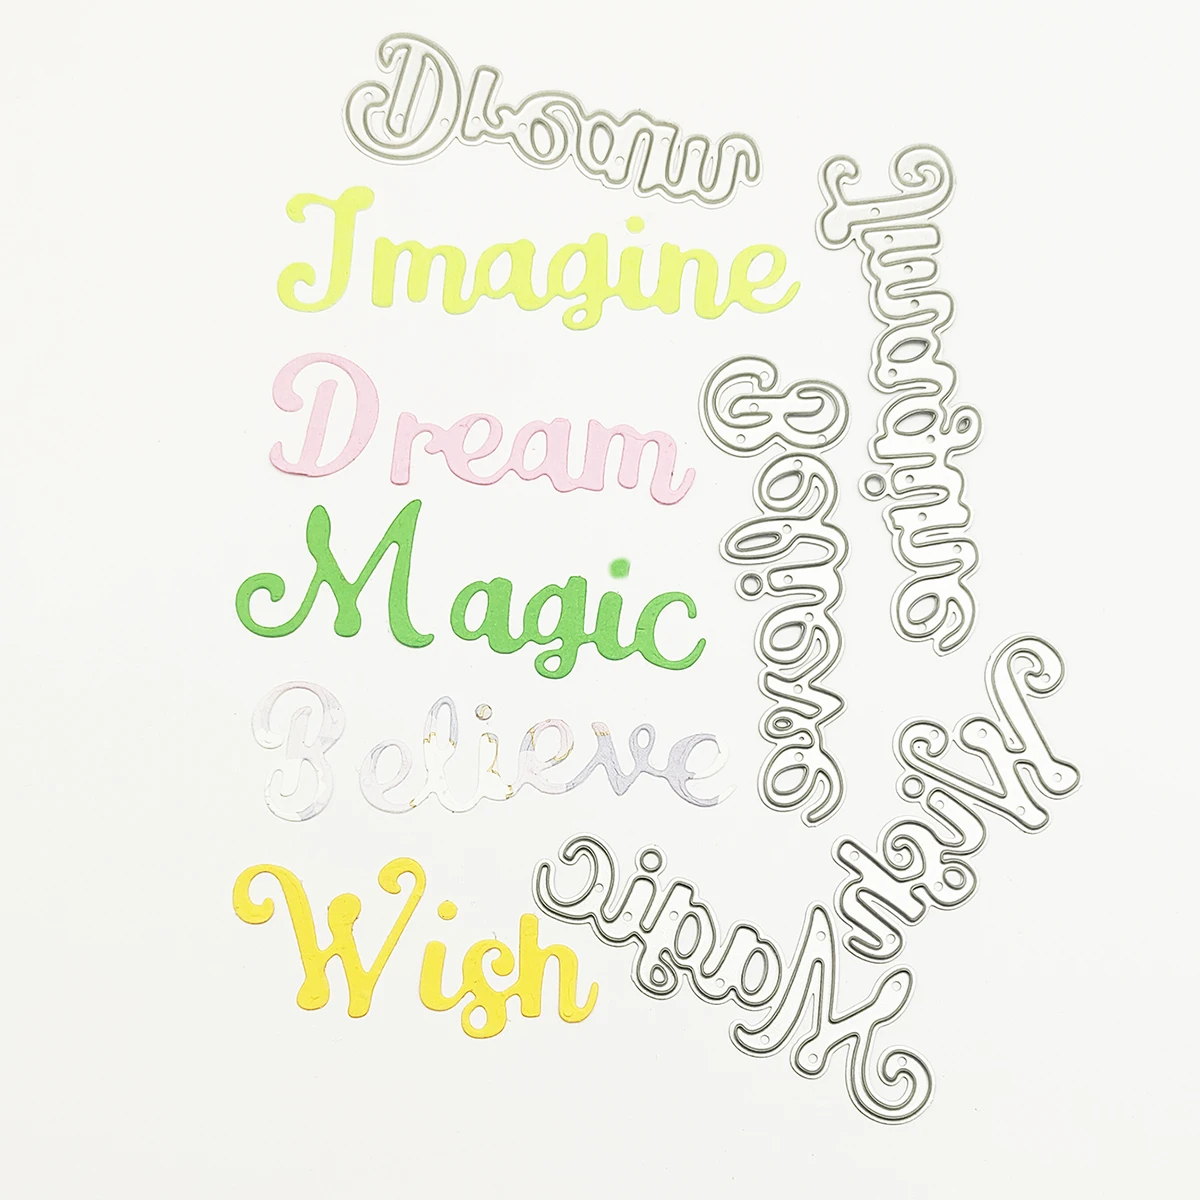 Dream
Imagine
Imagine
Dream
Believe
Magic
Believe
Wish
Wish
Magic